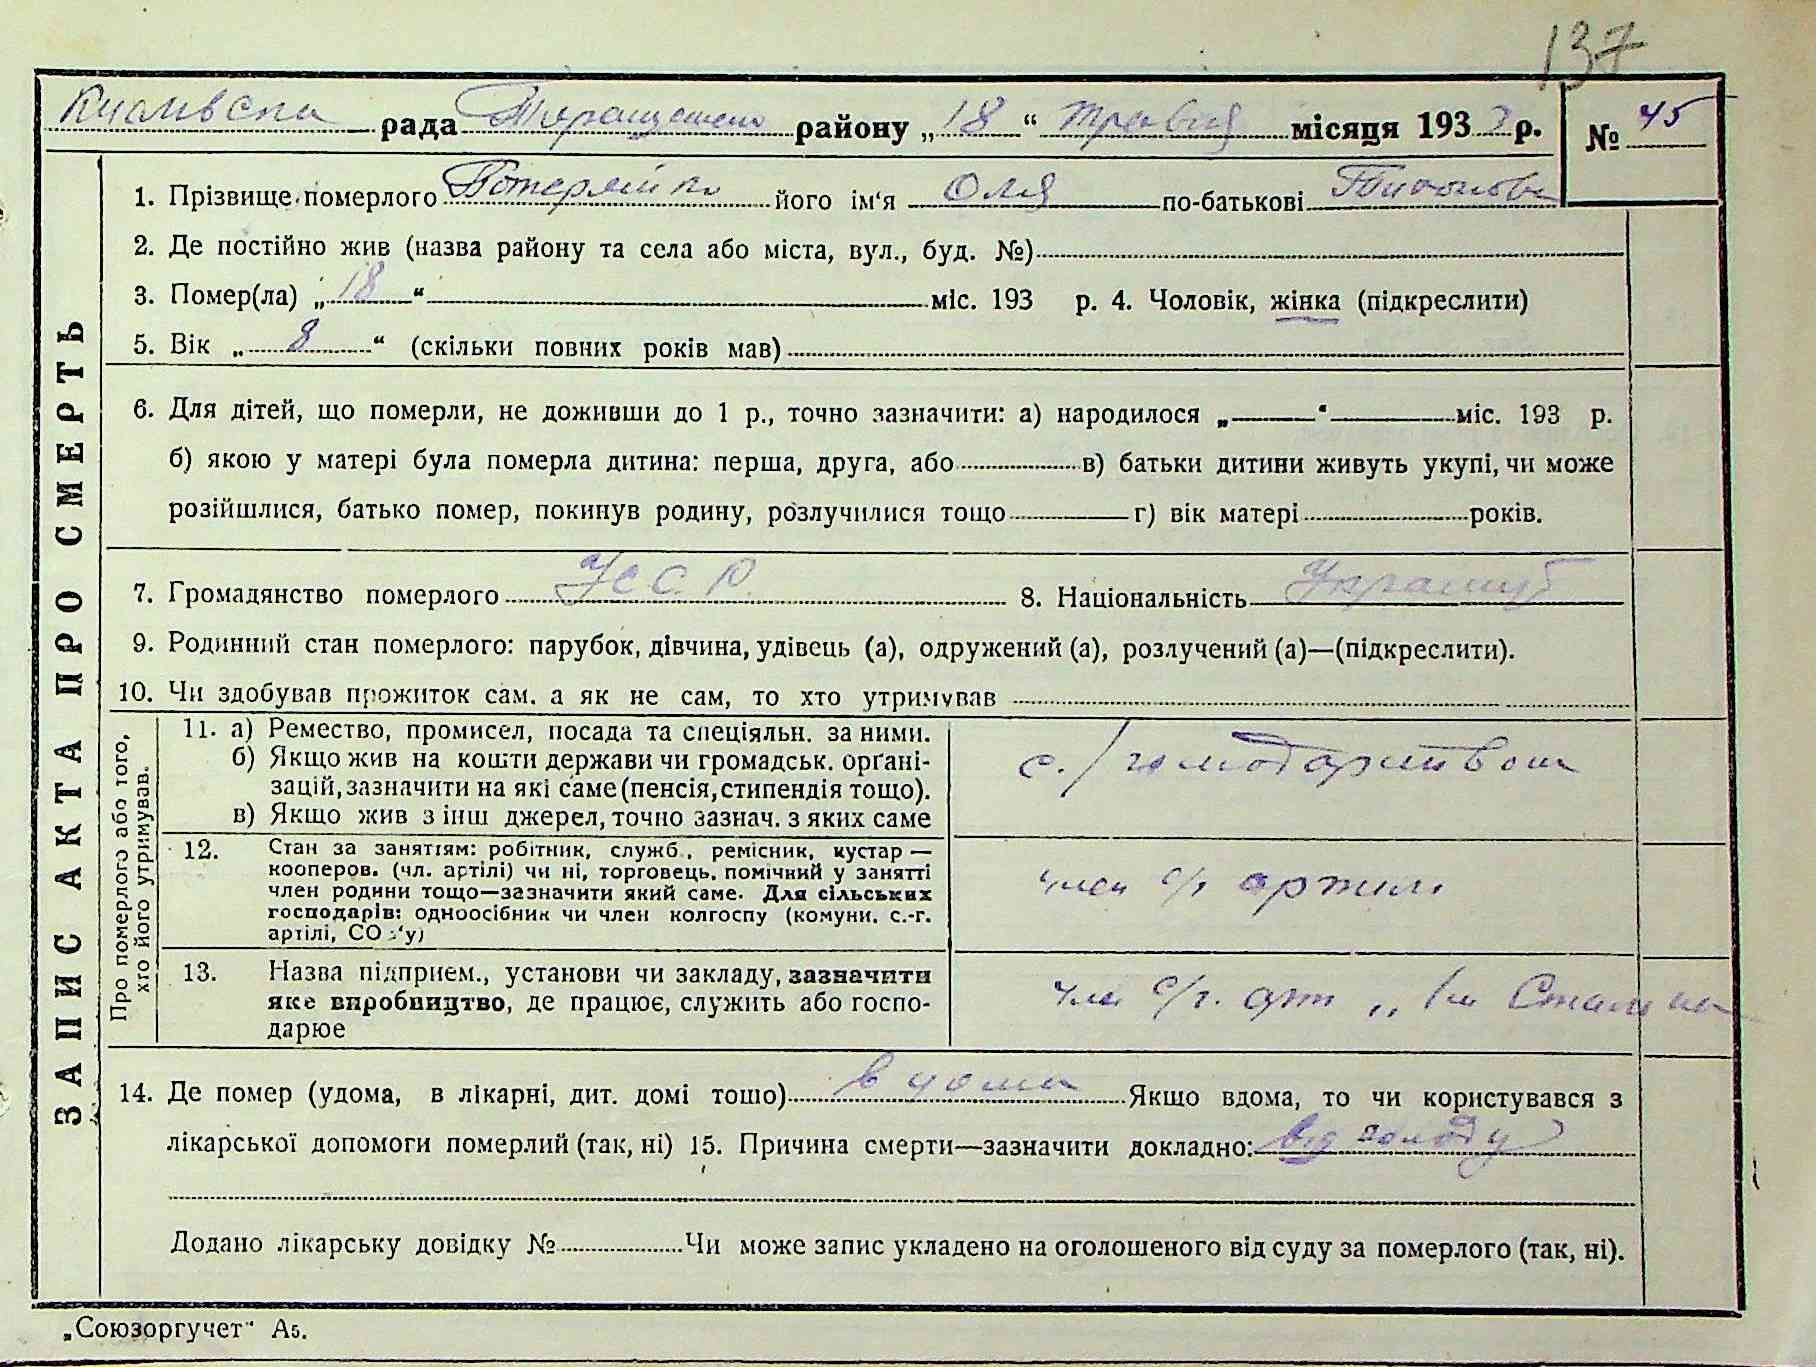 137
рада Таращанського району „18“ Травня місяця 193 р. № 45
ЗАПИС АКТА ПРО СМЕРТЬ
1. Прізвище померлого Потерайко його ім'я Оля по-батькові
2. Де постійно жив (назва району та села або міста, вул., буд. №)
3. Помер(ла) „18“ міс. 193 р. 4. Чоловік, жінка (підкреслити)
5. Вік „8“ (скільки повних років мав)
6. Для дітей, що померли, не доживши до 1 р., точно зазначити: а) народилося „ “ міс. 193 р.
б) якою у матері була померла дитина: перша, друга, або в) батьки дитини живуть укупі, чи може
розійшлися, батько помер, покинув родину, розлучилися тощо г) вік матері років.
7. Громадянство померлого УССР 8. Національність
9. Родинний стан померлого: парубок, дівчина, удівець (а), одружений (а), розлучений (а)—(підкреслити).
10. Чи здобував прожиток сам. а як не сам, то хто утримував
Про померлого або того, хто його утримував.
11. а) Ремество, промисел, посада та спеціяльн. за ними.
б) Якщо жив на кошти держави чи громадськ. орґані-
зацій, зазначити на які саме (пенсія, стипендія тощо).
в) Якщо жив з інш джерел, точно зазнач. з яких саме
с./господарством
12. Стан за заняттям: робітник, служб., ремісник, кустар —
кооперов. (чл. артілі) чи ні, торговець. помічний у занятті
член родини тощо—зазначити який саме. Для сільських
господарів: одноосібник чи член колгоспу (комуни. с.-г.
артілі, СО 'у)
член с/г артилі
13. Назва підприєм., установи чи закладу, зазначити
яке виробництво, де працює, служить або госпо-
дарює
член с/г. арт „Ім Сталина
14. Де помер (удома, в лікарні, дит. домі тошо) в дома Якщо вдома, то чи користувався з
лікарської допомоги померлий (так, ні) 15. Причина смерти—зазначити докладно: від голоду
Додано лікарську довідку № Чи може запис укладено на оголошеного від суду за померлого (так, ні).
„Союзоргучет" А5.